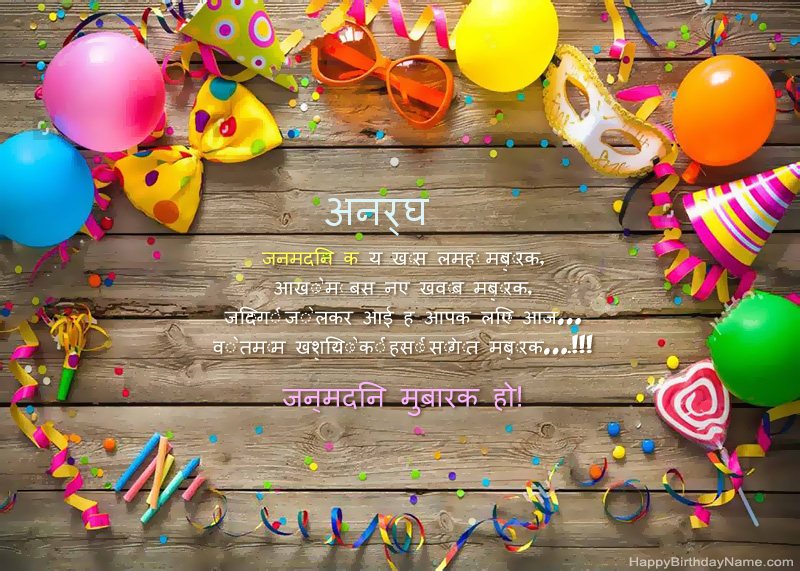 अनर्घ
जनमदनि क य खास लमहा मबारक,
आखोमे बस नए खवाब मबारक,
जदिगी जो लेकर आई ह आपक लएि आज...
वो तमाम खशयिो की हसी सोगात मबारक...!!!
जन्मदनि मुबारक हो!
HappyBirthdayName.com